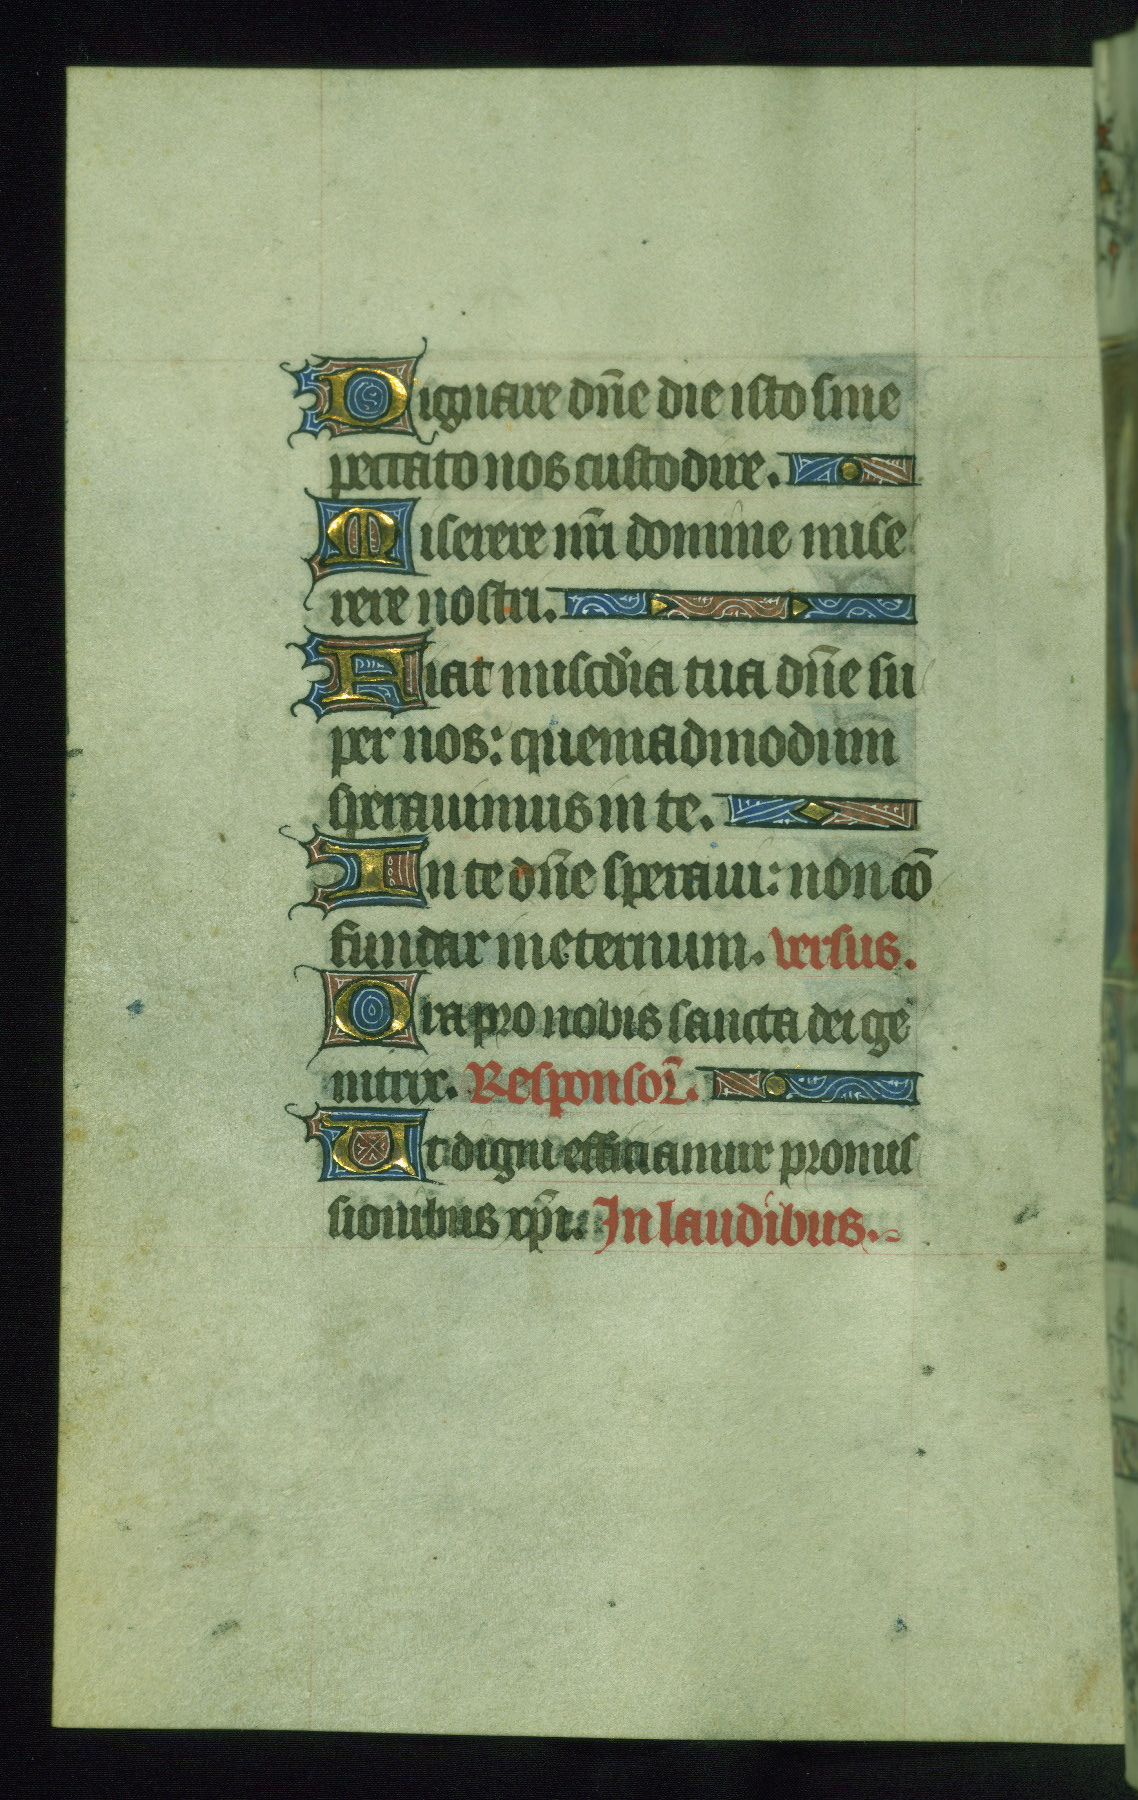 Dignare dn̄e die isto sine
peccato nos custodire.
Miserere nr̄i domine mise
rere nostri.
Fiat miscd̓ia tua dn̄e su
per nos: quemadmodum
sperauimus in te.
In te dn̄e speraui: non cō
fundar in eternum. versus.
Ora pro nobis sancta dei ge
nitrix. Responsoꝝ̄.
Ut digni efficiamur promis
sionibus xp̄i. In laudibus.